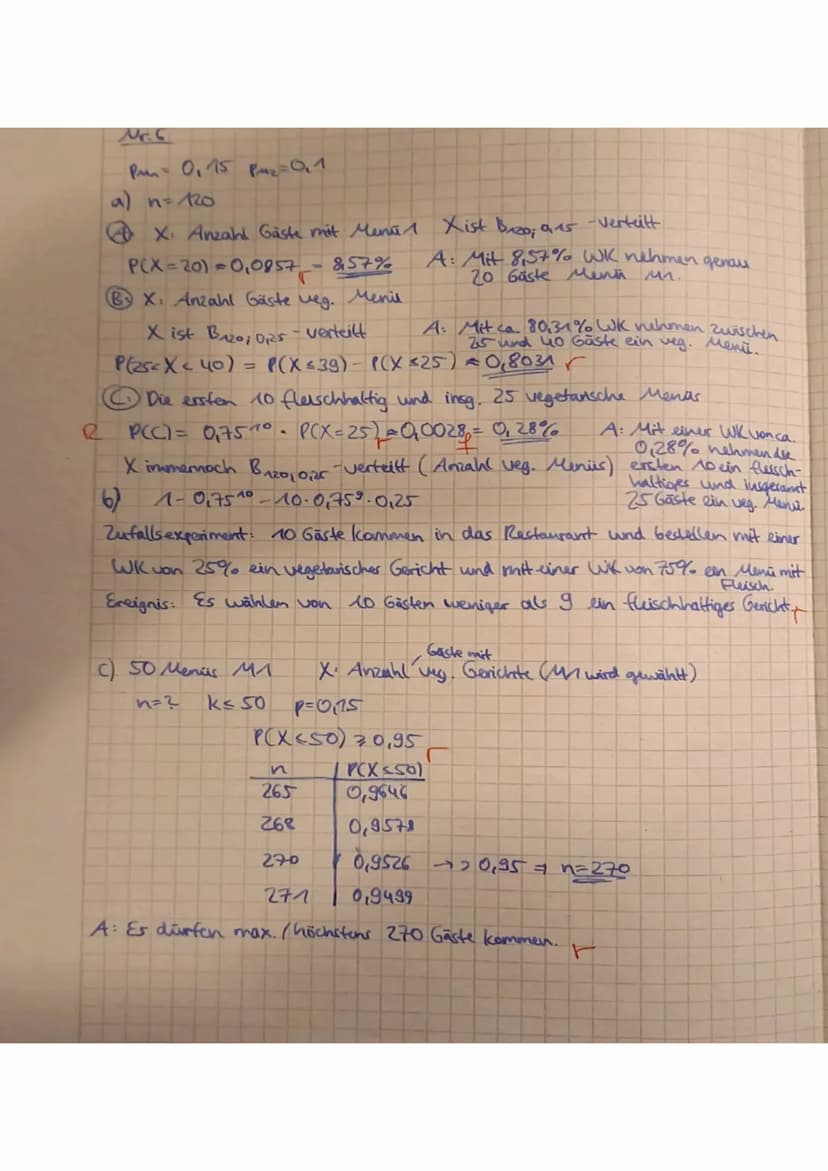 Nr. 6
pM1 = 0,15 pM2 = 0,1
a) n = 120
A X: Anzahl Gäste mit Menü 1 X ist B120; 0,15 - verteilt
P(X = 20) = 0,0857 = 8,57% A: Mit 8,57% WK nehmen genau
20 Gäste Menü M1.
B X: Anzahl Gäste veg. Menü
X ist B120; 0,25 - verteilt A: Mit ca. 80,31% WK nehmen zwischen
25 und 40 Gäste ein veg. Menü.
P(25 < X < 40) = P(X ≤ 39) - P(X ≤ 25) ≈ 0,8031 r
C Die ersten 10 fleischhaltig und insg. 25 vegetarische Menüs
R P(C) = 0,75^10 · P(X = 25) ≈ 0,0028 = 0,28% A: Mit einer WK von ca.
0,28% nehmen die
X immernoch B120; 0,25 - verteilt (Anzahl veg. Menüs) ersten 10 ein fleisch-
haltiges und insgesamt
25 Gäste ein veg. Menü.
b) 1 - 0,75^10 - 10 · 0,75^9 · 0,25
Zufallsexperiment: 10 Gäste kommen in das Restaurant und bestellen mit einer
WK von 25% ein vegetarisches Gericht und mit einer WK von 75% ein Menü mit
Fleisch.
Ereignis: Es wählen von 10 Gästen weniger als 9 ein fleischhaltiges Gericht. r
c) 50 Menüs M1 X: Anzahl Gäste mit veg. Gerichte (M1 wird gewählt)
n = ? k ≤ 50 p = 0,15
P(X ≤ 50) ≥ 0,95 r
n P(X ≤ 50)
265 0,9646
268 0,9578
270 0,9526 → > 0,95 ⇒ n = 270
271 0,9499
A: Es dürfen max. / höchstens 270 Gäste kommen. r